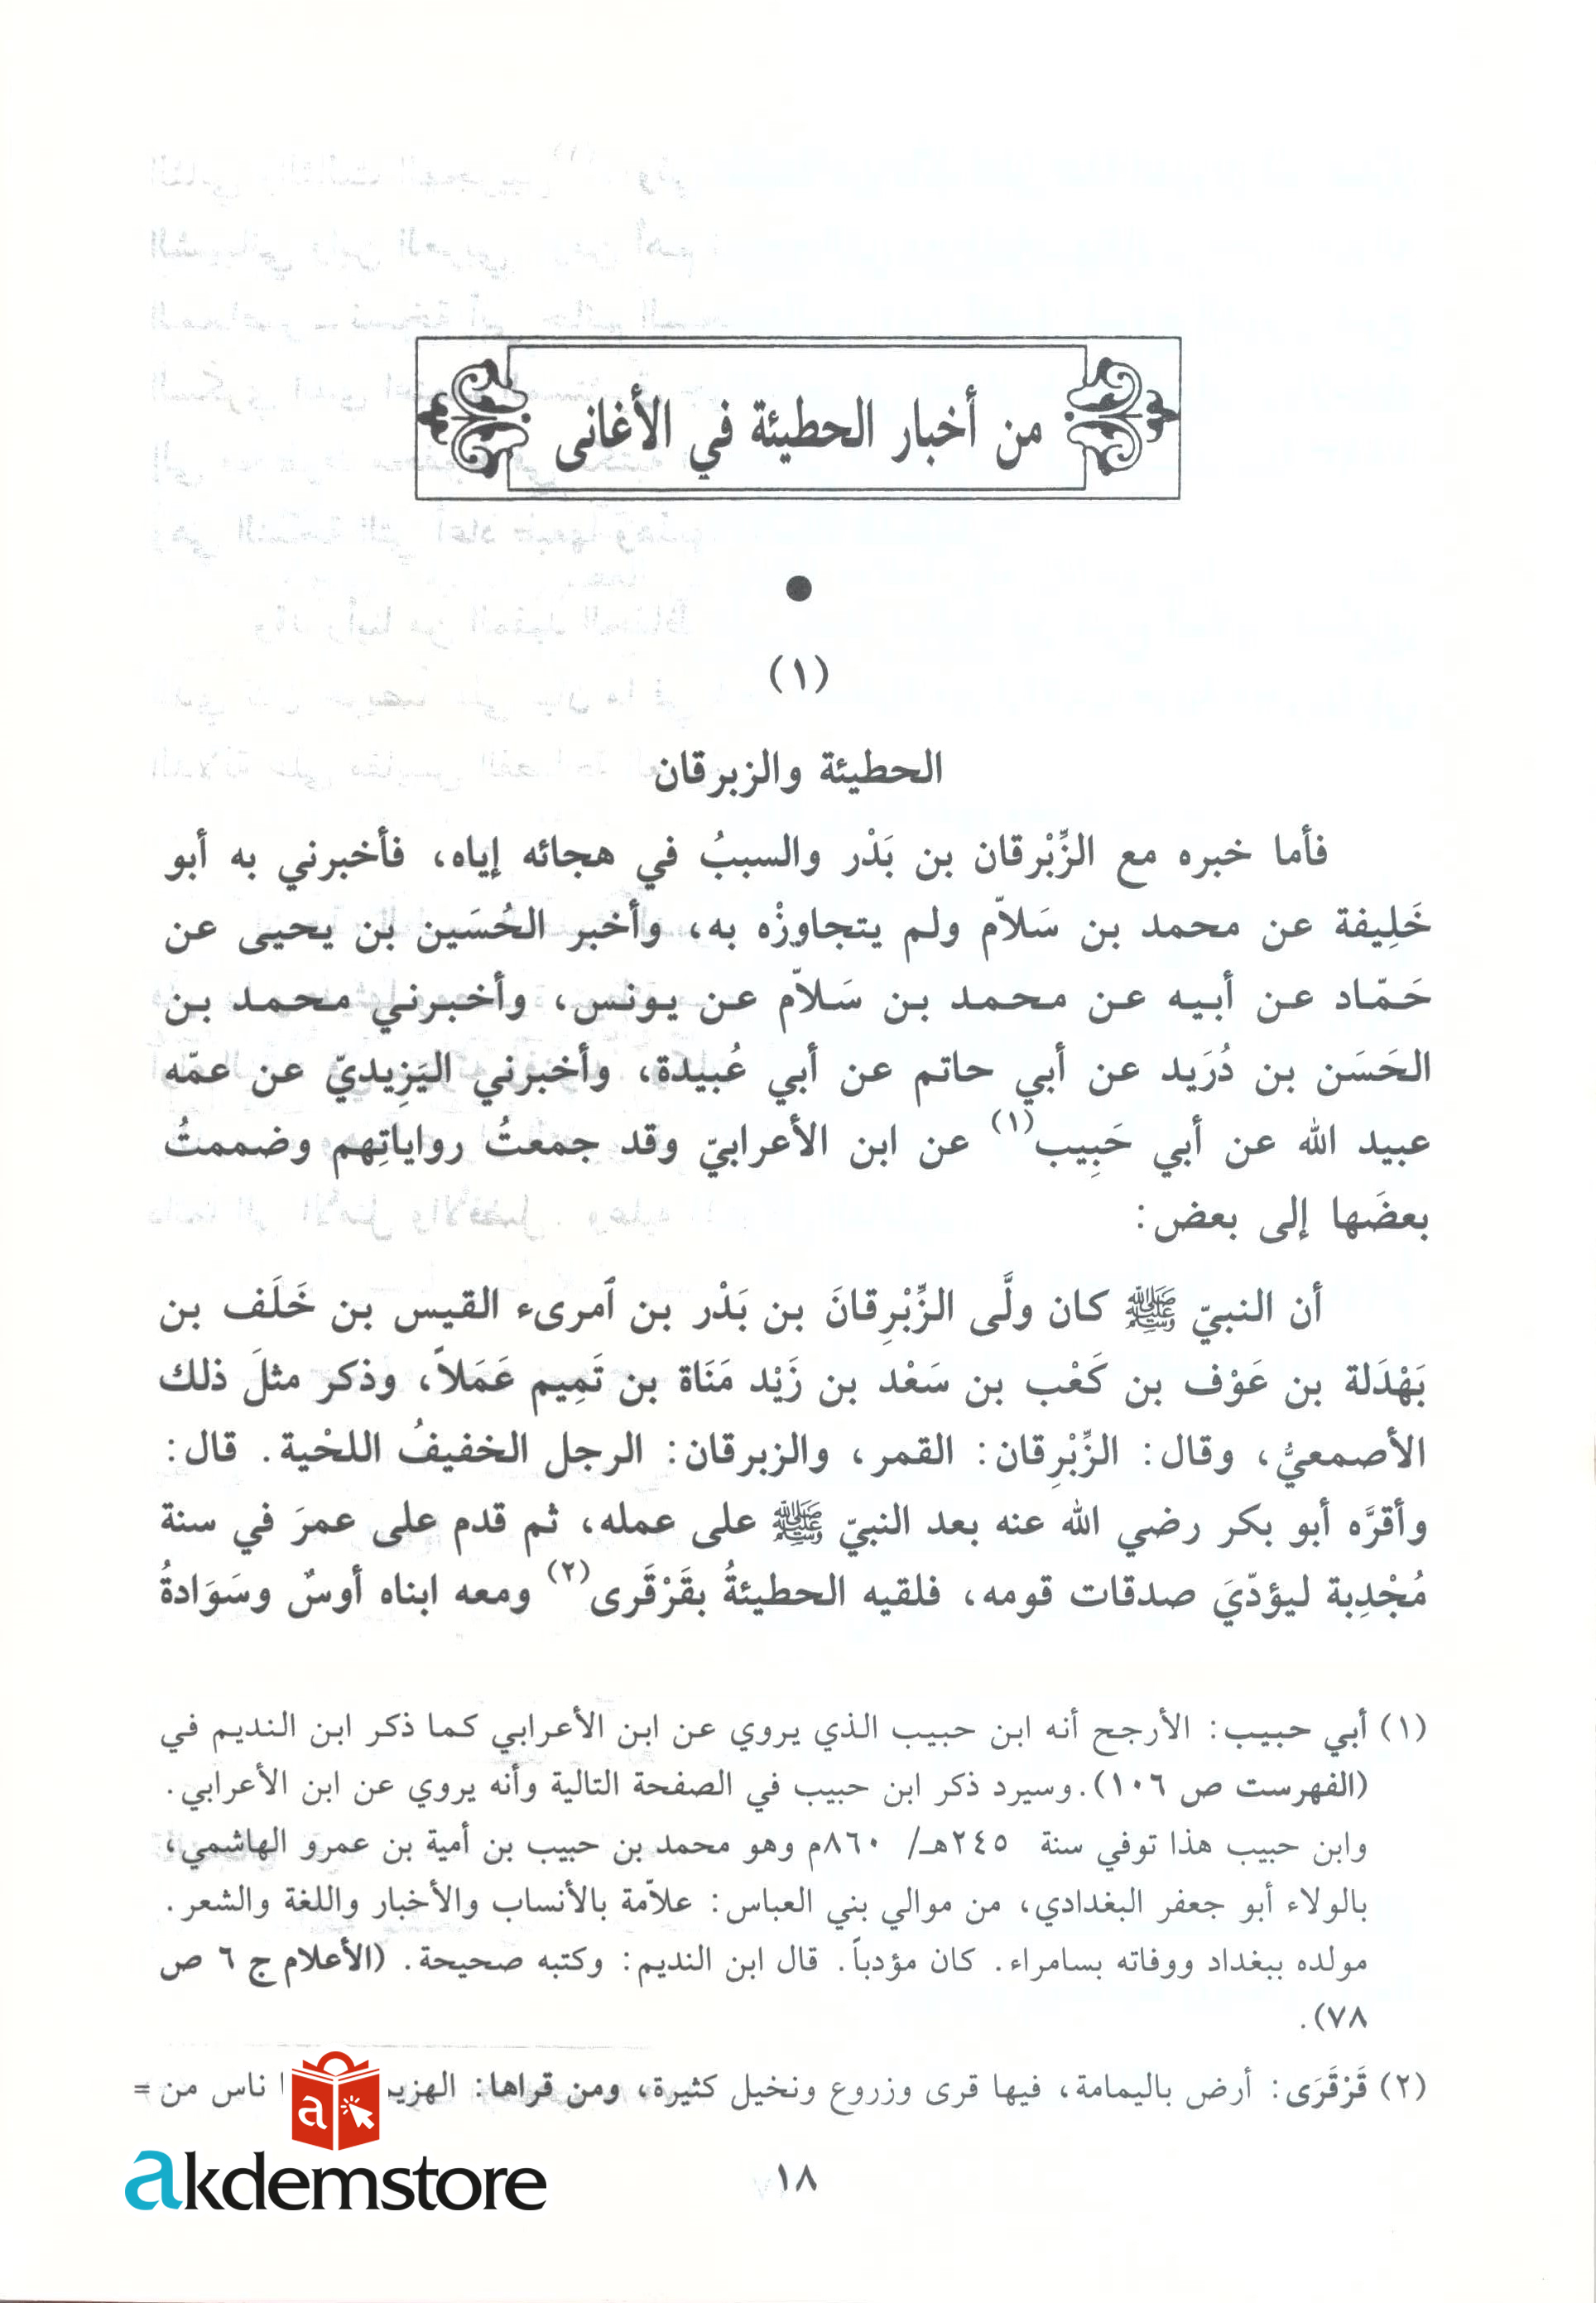 من أخبار الحطيئة في الأغانى
(١)
الحطيئة والزبرقان
فأما خبره مع الزِّبْرقان بن بَدْر والسببُ في هجائه إياه، فأخبرني به أبو
خَلِيفة عن محمد بن سَلاّم ولم يتجاوزْه به، وأخبر الحُسَين بن يحيى عن
حَمّاد عن أبيه عن محمد بن سَلاّم عن يونس، وأخبرني محمد بن
الحَسَن بن دُرَيد عن أبي حاتم عن أبي عُبيدة، وأخبرني اليَزِيديّ عن عمّه
عبيد الله عن أبي حَبِيب(١) عن ابن الأعرابيّ وقد جمعتُ رواياتِهم وضممتُ
بعضَها إلى بعض:
أن النبيّ ﷺ كان ولَّى الزِّبْرِقانَ بن بَدْر بن ٱمرىء القيس بن خَلَف بن
بَهْدَلة بن عَوْف بن كَعْب بن سَعْد بن زَيْد مَنَاة بن تَمِيم عَمَلاً، وذكر مثلَ ذلك
الأصمعيُّ، وقال: الزِّبْرِقان: القمر، والزبرقان: الرجل الخفيفُ اللحْية. قال:
وأقرَّه أبو بكر رضي الله عنه بعد النبيّ ﷺ على عمله، ثم قدم على عمرَ في سنة
مُجْدِبة ليؤدّيَ صدقات قومه، فلقيه الحطيئةُ بقَرْقَرى(٢) ومعه ابناه أوسٌ وسَوَادةُ
(١) أبي حبيب: الأرجح أنه ابن حبيب الذي يروي عن ابن الأعرابي كما ذكر ابن النديم في
(الفهرست ص ١٠٦). وسيرد ذكر ابن حبيب في الصفحة التالية وأنه يروي عن ابن الأعرابي.
وابن حبيب هذا توفي سنة ٢٤٥هـ/ ٨٦٠م وهو محمد بن حبيب بن أمية بن عمرو الهاشمي،
بالولاء أبو جعفر البغدادي، من موالي بني العباس: علاّمة بالأنساب والأخبار واللغة والشعر.
مولده ببغداد ووفاته بسامراء. كان مؤدباً. قال ابن النديم: وكتبه صحيحة. (الأعلام ج ٦ ص
٧٨).
(٢) قَرْقَرَى: أرض باليمامة، فيها قرى وزروع ونخيل كثيرة، ومن قراها: ناس من =
a
akdemstore
١٨